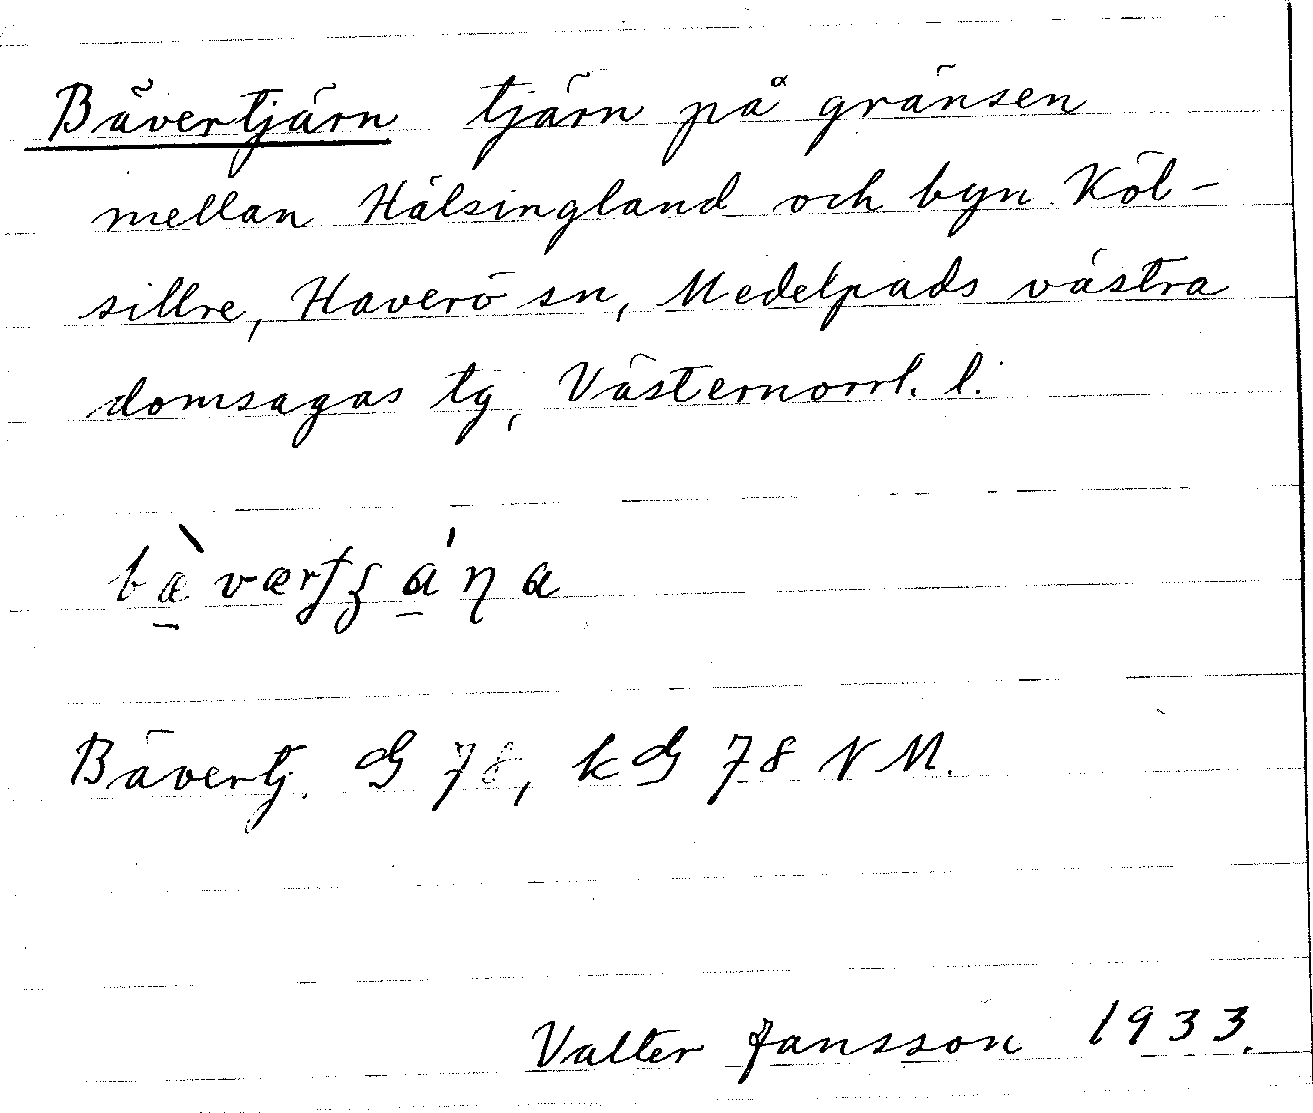 Bävertjärn tjärn på gränsen
mellan Hälsingland och byn Köl-
sillre, Haverö sn, Medelpads västra
domsagas tg, Västernorrl. l.
Bävertj. G 78, kG 78 NM.
Valter Jansson 1933.